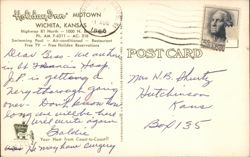 Holiday Inn MIDTOWN
WICHITA, KANSAS
Highway 81 North - 1000 N.
Ph. AM 7-6211 - AC 316
Swimming Pool - Air-conditioned - Restaurant
Free TV - Free Holiday Reservations
POST CARD
Dear Bess - We are here
in St Francis Hosp.
J.P. is getting a
very thorough going
over - Don't know how
long we will be here
will write again
Goldie
Your Host from Coast-to-Coast
He may have surgery
Mrs N.B.
Hutchinson
Kans
Box 135